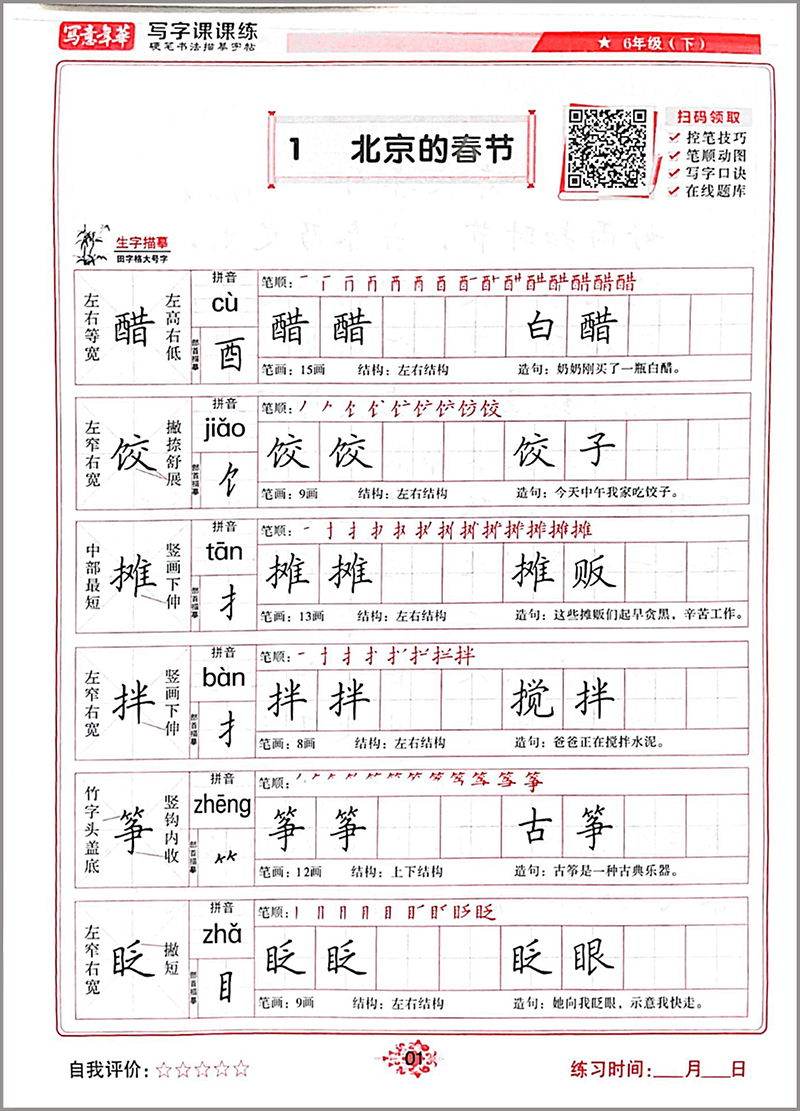 写意年华
写字课课练
硬笔书法描摹字帖
★ 6年级（下）
1 北京的春节
扫码领取
✓ 控笔技巧
✓ 笔顺动图
✓ 写字口诀
✓ 在线题库
生字描摹
田字格大号字
左右等宽 醋 左高右低
拼音
cù
部首描摹 酉
笔顺：
醋 醋 白 醋
笔画：15画 结构：左右结构 造句：奶奶刚买了一瓶白醋。
左窄右宽 饺 撇捺舒展
拼音
jiǎo
部首描摹 饣
笔顺：
饺 饺 饺 子
笔画：9画 结构：左右结构 造句：今天中午我家吃饺子。
中部最短 摊 竖画下伸
拼音
tān
部首描摹 扌
笔顺：
摊 摊 摊 贩
笔画：13画 结构：左右结构 造句：这些摊贩们起早贪黑，辛苦工作。
左窄右宽 拌 竖画下伸
拼音
bàn
部首描摹 扌
笔顺：
拌 拌 搅 拌
笔画：8画 结构：左右结构 造句：爸爸正在搅拌水泥。
竹字头盖底 筝 竖钩内收
拼音
zhēng
部首描摹 ⺮
笔顺：
筝 筝 古 筝
笔画：12画 结构：上下结构 造句：古筝是一种古典乐器。
左窄右宽 眨 撇短
拼音
zhǎ
部首描摹 目
笔顺：
眨 眨 眨 眼
笔画：9画 结构：左右结构 造句：她向我眨眼，示意我快走。
自我评价：☆☆☆☆☆
01
练习时间：___月___日